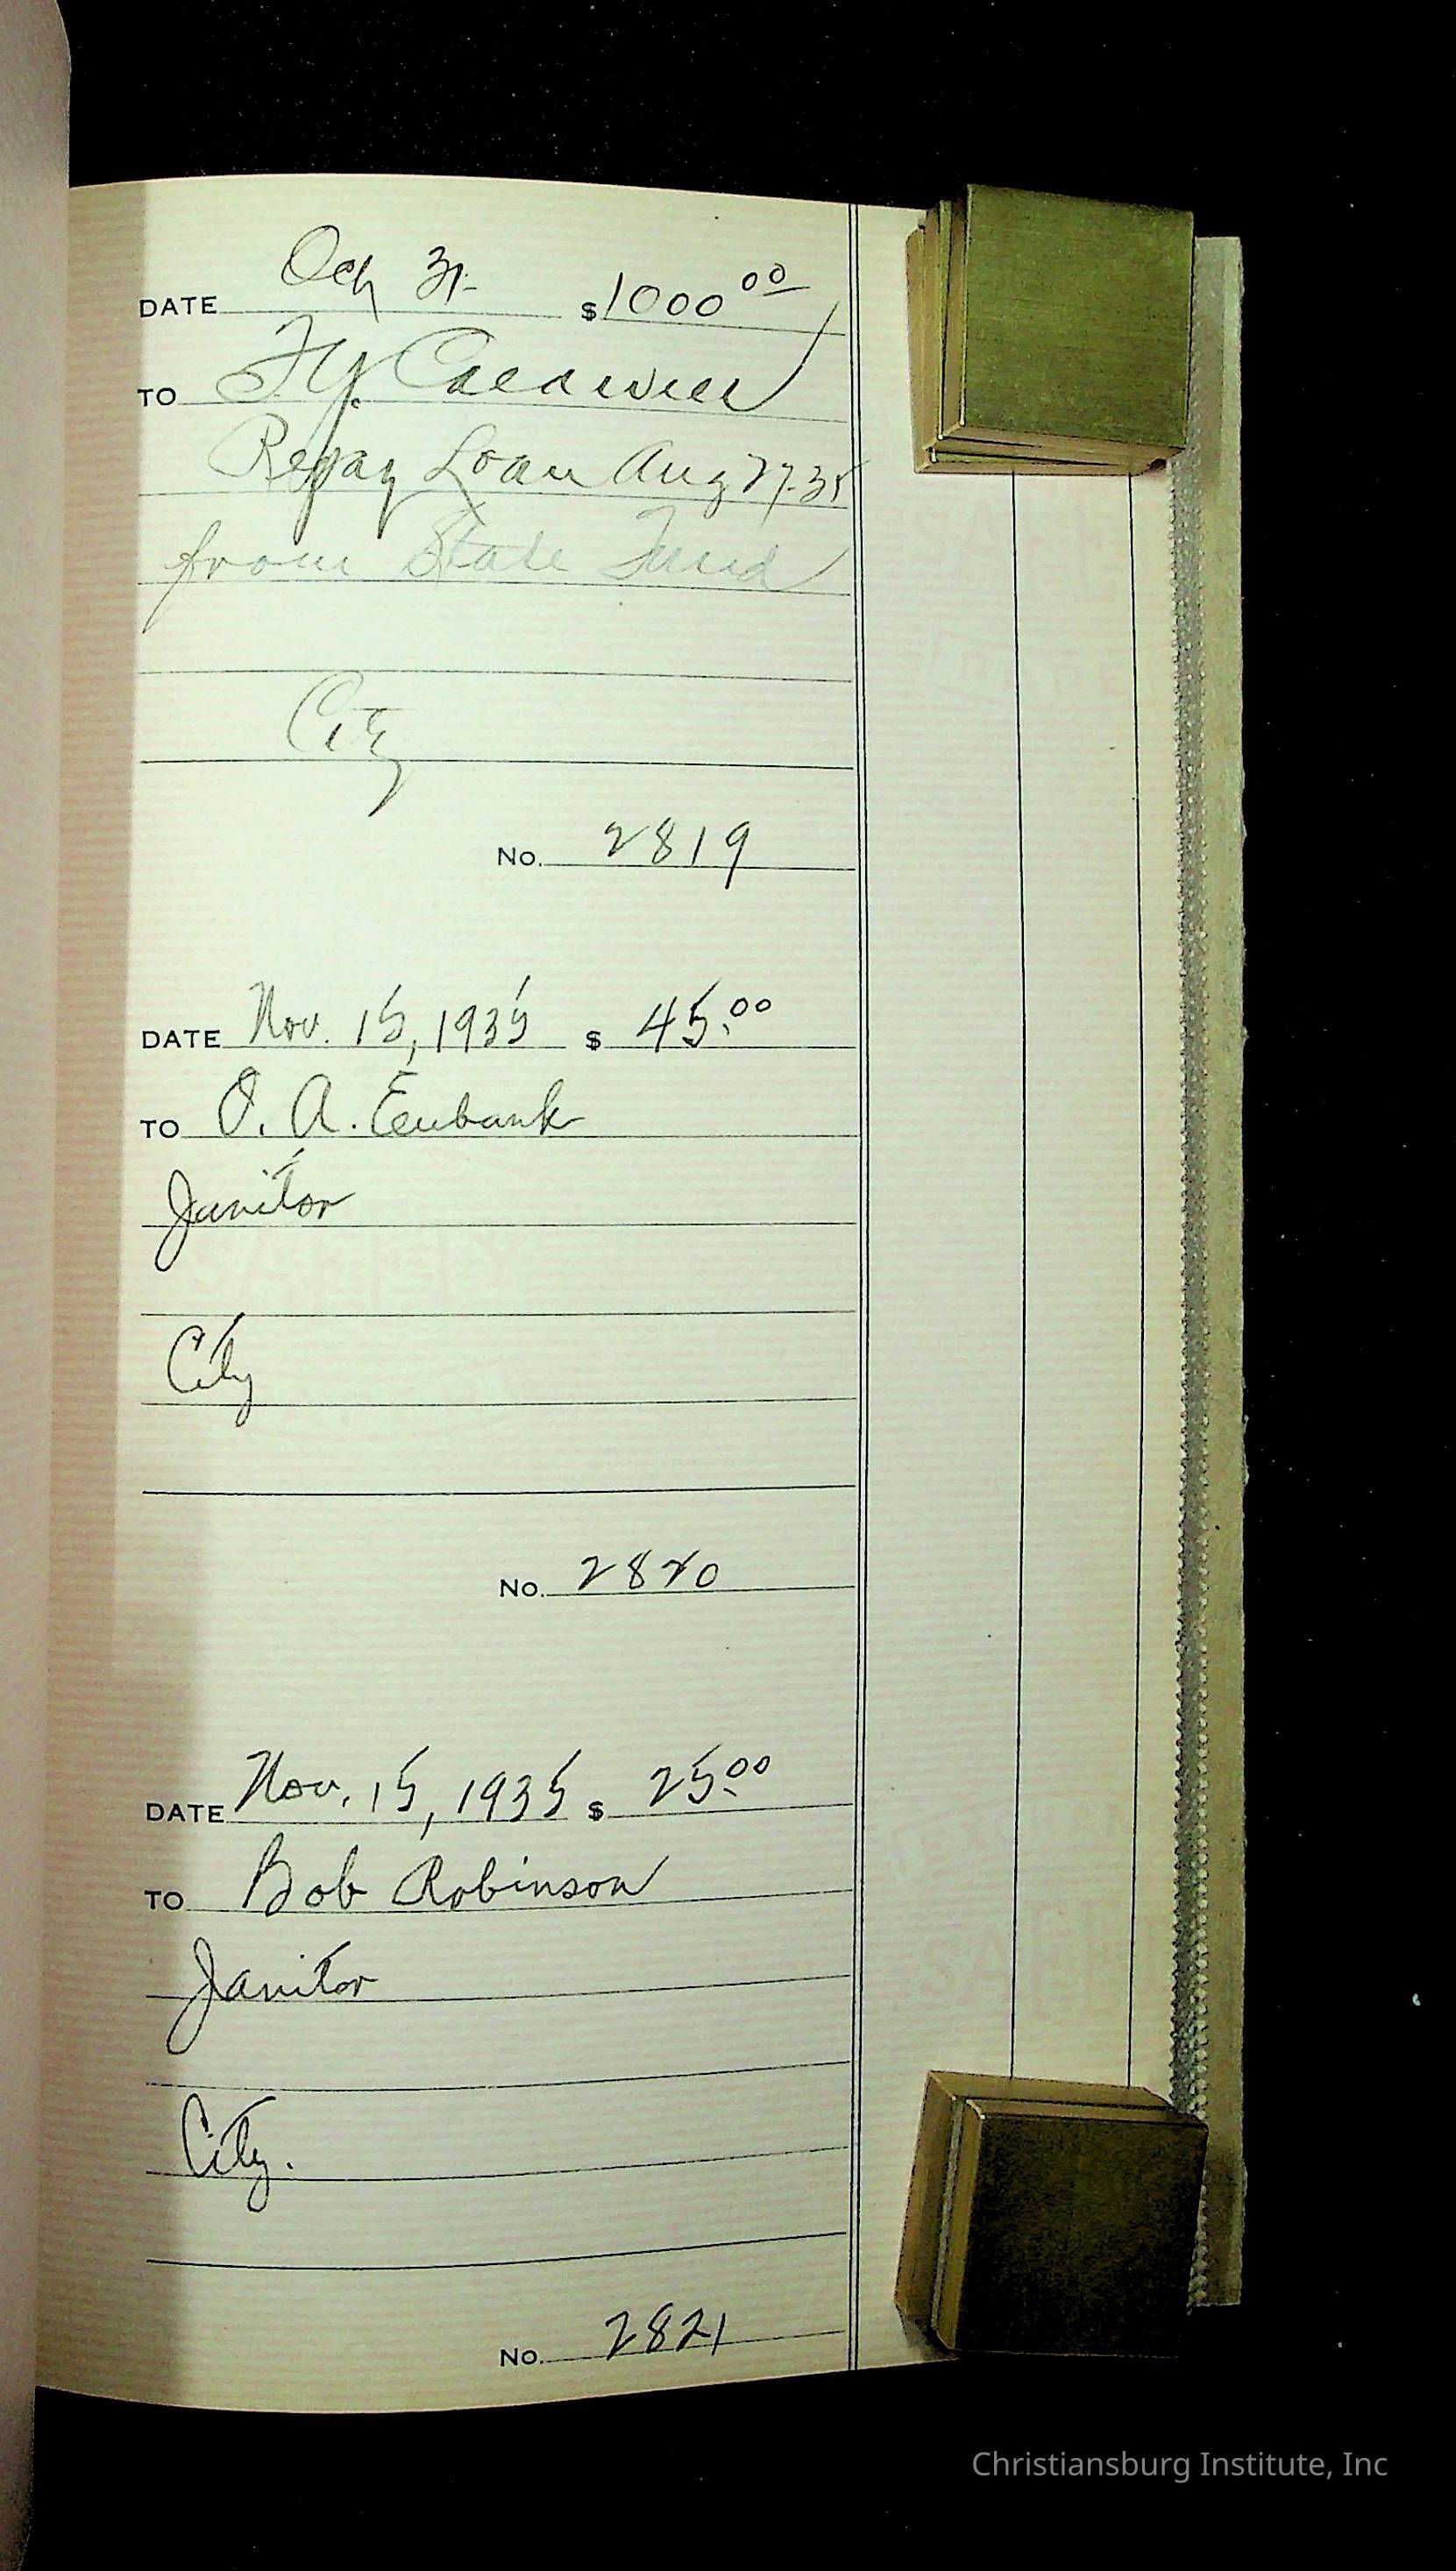 DATE Oct 31- $1000 00
TO F.Y. Caldwell
Repay Loan Aug 27-35
from State Fund
City
No. 2819
DATE Nov. 15, 1935 $ 45.00
TO O. A. Eubank
Janitor
City
No. 2820
DATE Nov. 15, 1935 $ 25.00
TO Bob Robinson
Janitor
City.
No. 2821
Christiansburg Institute, Inc